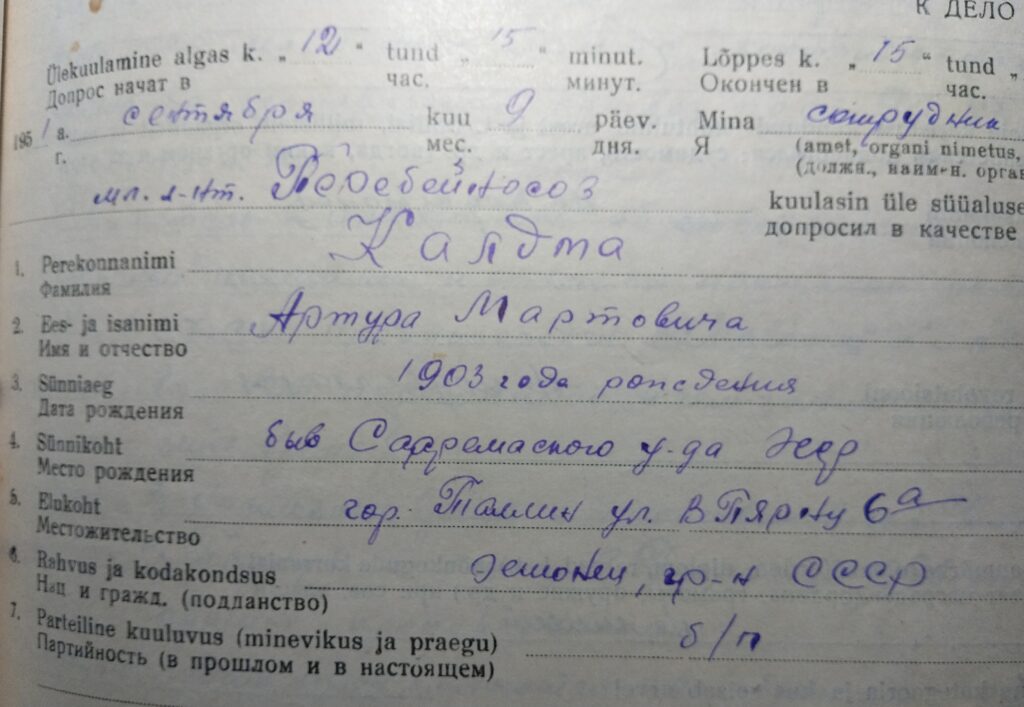 К ДЕЛО
Ülekuulamine algas k. „ 12 “ tund „ 15 “ minut. Lõppes k. „ 15 “ tund „
Допрос начат в час. минут. Окончен в час.
1951 a. сентября kuu 9 päev. Mina сотрудник
г. мес. дня. Я (amet, organi nimetus,
(должн., наимен. орган
мл. л-нт. Перебейносоз kuulasin üle süüaluse
допросил в качестве
Калдта
1. Perekonnanimi
Фамилия
2. Ees- ja isanimi Артура Мартовича
Имя и отчество
3. Sünniaeg 1903 года рождения
Дата рождения
4. Sünnikoht быв у-да
Место рождения
5. Elukoht гор. Таллин ул. В Пярну 6а
Местожительство
6. Rahvus ja kodakondsus Эстонец, гр-н СССР
Нац и гражд. (подланство)
7. Parteiline kuuluvus (minevikus ja praegu) б/п
Партийность (в прошлом и в настоящем)